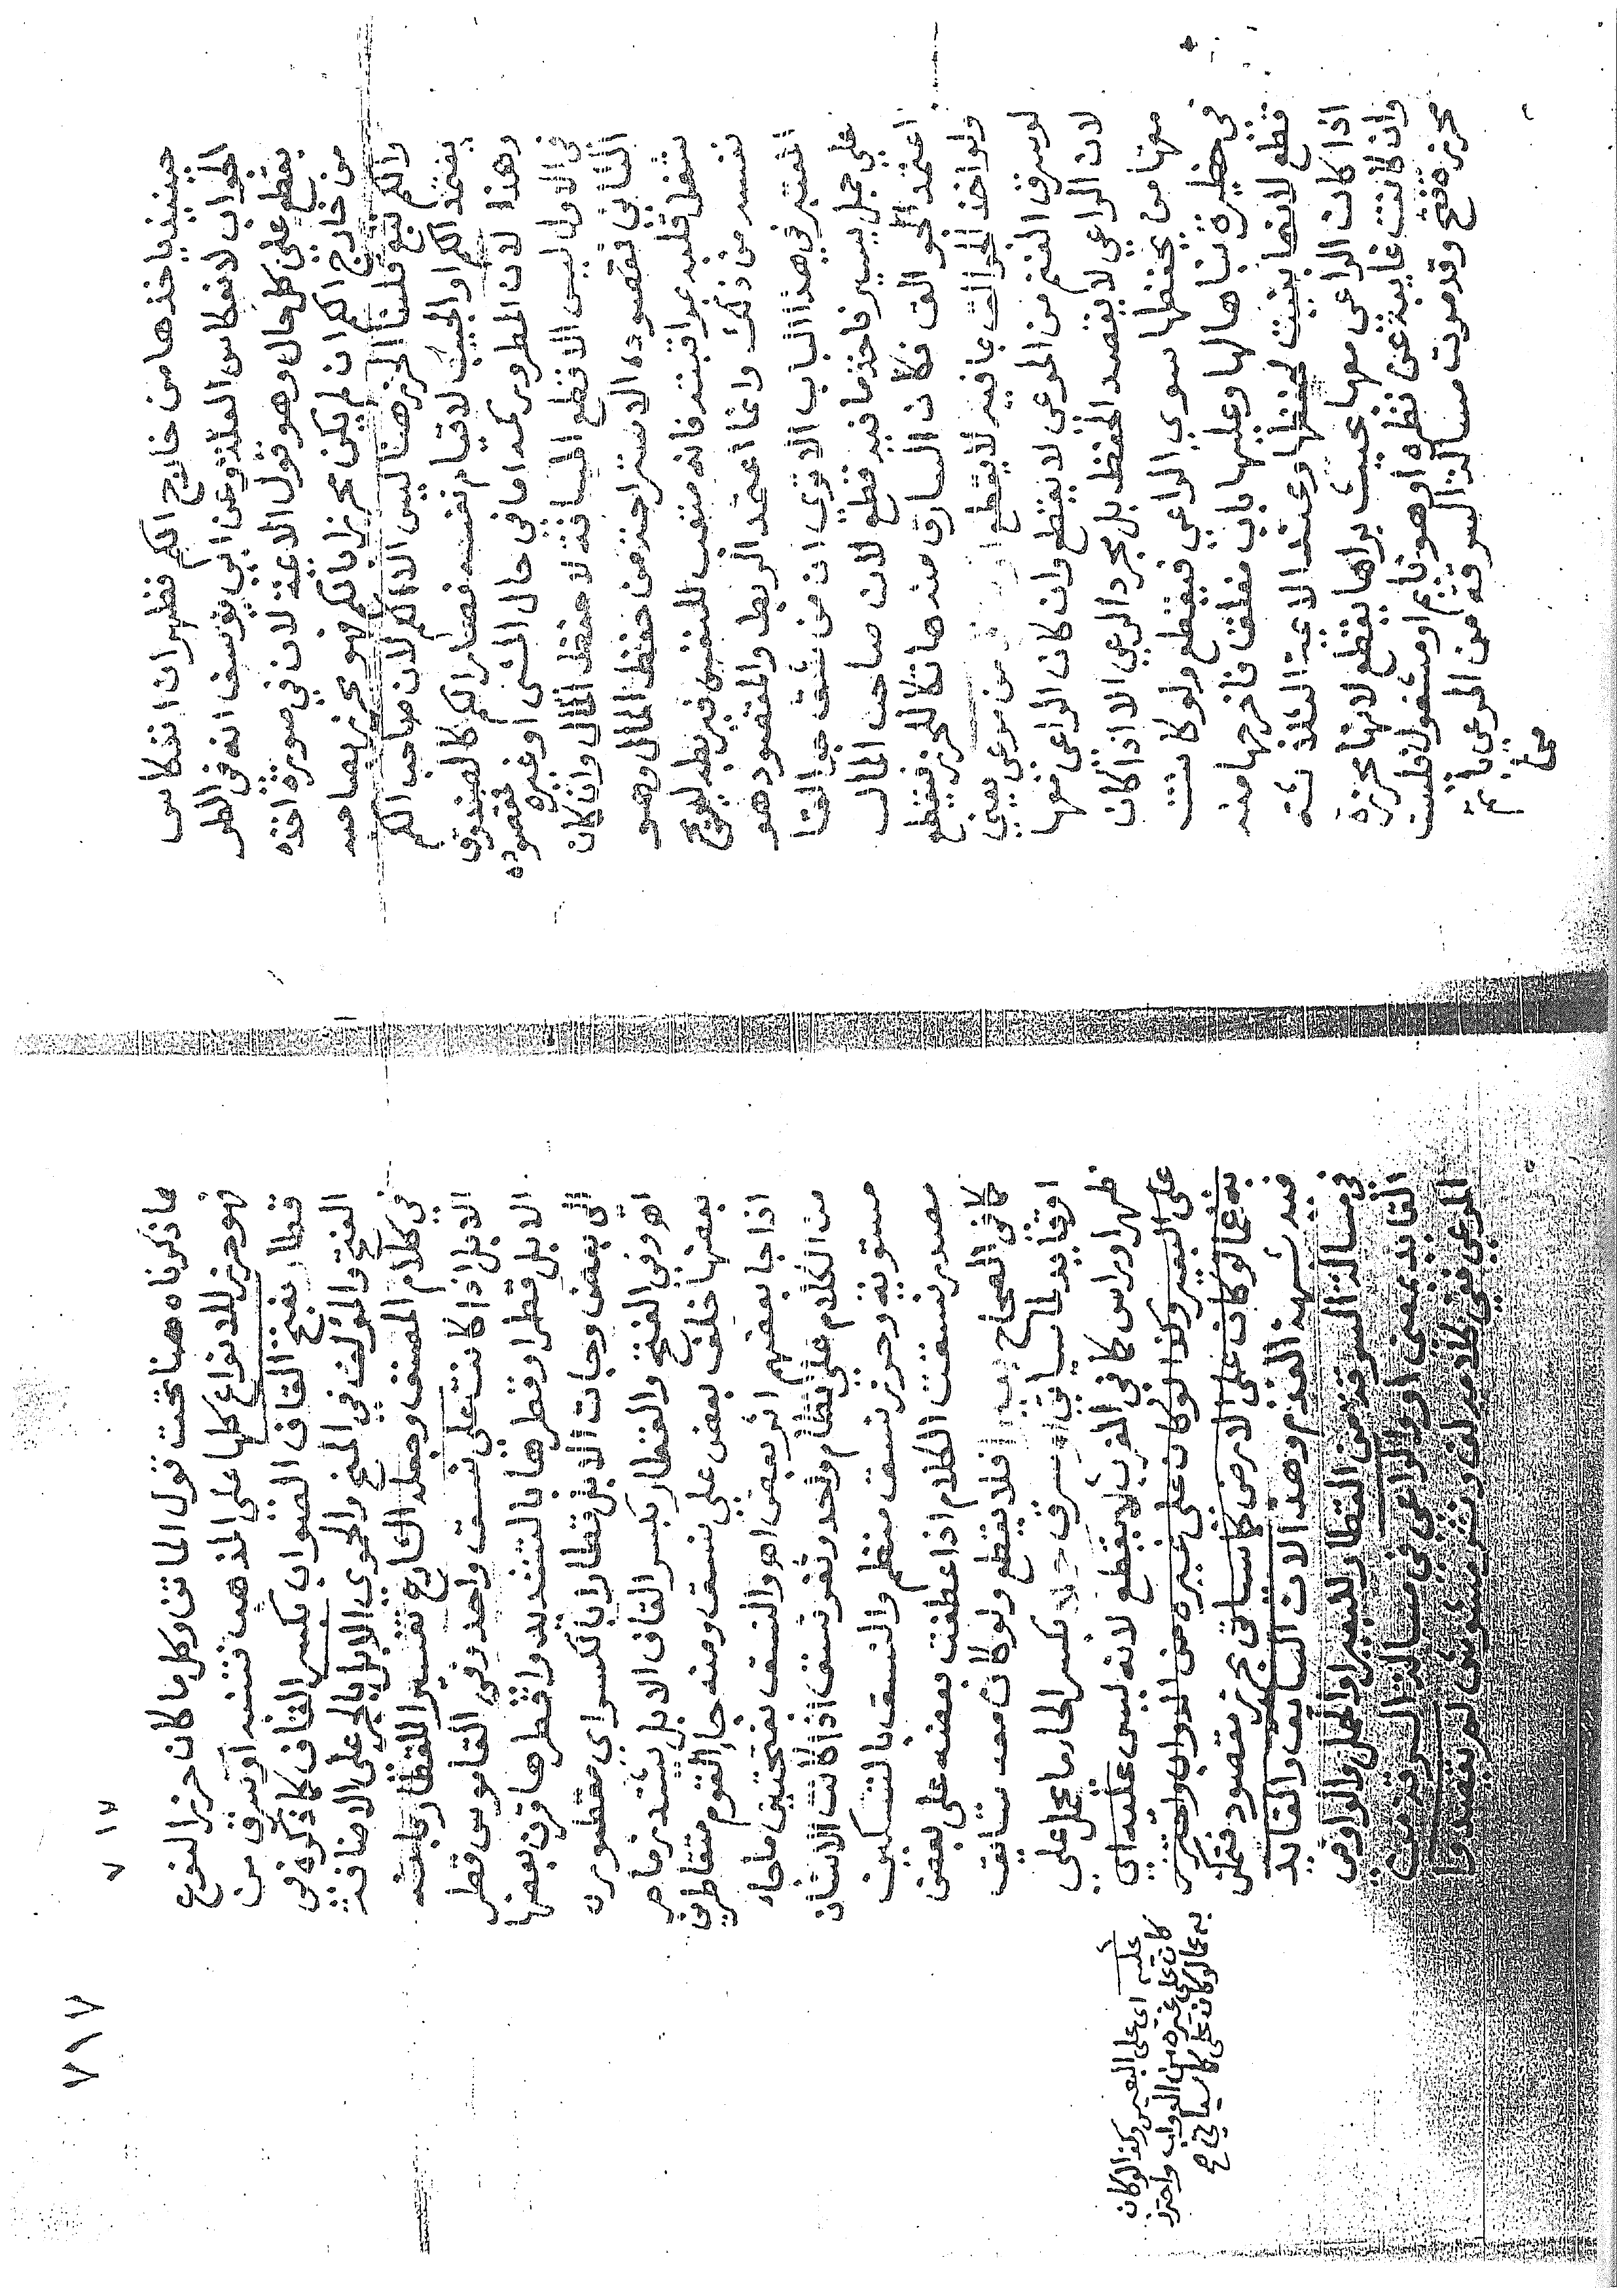 حينئذ ياخذها من خارج الكم فظهر ان انعكاس
الجواب لانعكاس العلة وعن ابي يوسف انه في الطر
يقطع على كل حال وهو قول الائمة لان في صورة اخذه
من خارج الكم ان لم يكن محرزا بالكم فهو محرز بصاحبه
والكم تبع قلنا الحرز هنا ليس الا الكم لان صاحب الكم
يعتمد الكم او الجيب لاقيام نفسه فصار الكم كالصندوق
وهذا لان المطرور كمه اما في حال المشي او غيره فمقصوده
في الاول ليس الا قطع المسافة لا حفظ المال وان كان
الثاني فمقصوده الاستراحة من حفظ المال وهو
شغل قلبه بمراقبته فانه متعب للنفس فيربطه ليريح
نفسه من ذلك وانما اعتمد الربط والمقصود هو
المعتبر في هذا الباب الا ترى ان من شق جوالقا
على جمل يسير فاخذ ما فيه قطع لان صاحب المال
اعتمد الجوالق فكان السارق منه هاتكا للحرز فيقطع
ولو اخذ الجوالق بما فيه لايقطع من مرعى يعني
لو سرق الغنم من المرعى لا يقطع وان كان الراعي معها
لان الراعي لايقصد الحفظ بل مجرد الرعي الا اذا كان
معها من يحفظها سوى الراعي فيقطع ولو كانت
في حظيرة بناها لها وعليها باب مغلق فاخرجها منه
قطع لانها بنيت لحفظها وعند الائمة الثلاثة
اذا كان الراعي معها بحيث يراها يقطع لانها محرزة
وان كانت غايبة عن نظره او هو نايم او مشغول فليست
محرزة فتح وقد مرت مسالة السرقة من المرعى بأتم

٧١٧
٧١٧
ماذكرناه هنا تحت قول الماتن وكل ما كان حرزا لنوع
فهو حرز للانواع كلها على المذهب فتنبه او سرق من
قطار بفتح القاف الصواب بكسر القاف كما ذكره في
الفتح والمؤلف في المنح والحموي الابل بالجر على الاضافة
في كلام المصنف وجعله الشارح تفسيرا للقطار بجملة
الابل اذا كانت على نسق واحد وفي القاموس قطر
الابل قطرا وقطرها بالتشديد واقطرها قرن بعضها
الى بعض وجات الابل قطارا بالكسر اي مقطورة
اهـ وفي الفتح والقطار بكسر القاف الابل تشد زمام
بعضها خلف بعض على نسق ومنه جاء القوم متقاطرين
اذا جا بعضهم اثر بعض اهـ والنسق بفتحتين ماجاء
من الكلام على نظام واحد وثغر نسق اذا كانت الاسنان
مستوية وحرز نسق منظم والنسق بالتسكين
مصدر نسقت الكلام اذا عطفت بعضه على بعض
كما في الصحاح فلا يقطع ولو كان معه سائق
او قايد لما سياتي او سرق حملا بكسر الحاء ما يحمل على
ظهر او راس كما في المغرب لا يقطع لانه ليس عليه اي
على البعير وكذا لو كان على غيره من الدواب واحترز
به عما لو كان على الارض كما سياتي بحرز مقصود فتمكن
فيه شبهة العدم وهذا لان السايق والقايد
في مسالة السرقة من القطار للبعير او الحمل والراعي
القايد بمعنى او والراعي في مسالة السرقة من
المرعى ففي كلامه لف ونشر مشوش لم يقصدوا

عليه اي على البعير وكذا لو كان
كان على غيره من الدواب واحترز
به عما لو كان على كما سياتي صح